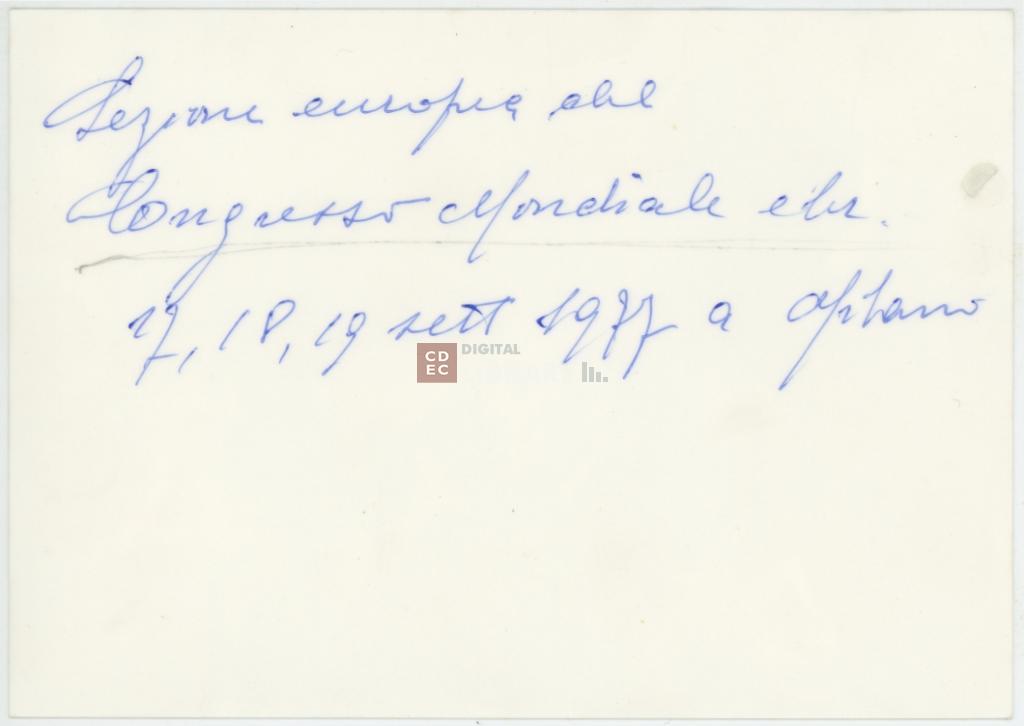 Sezione europea del
Congresso Mondiale ebr.
17, 18, 19 sett 1977 a Milano
CDEC DIGITAL
LIBRARY